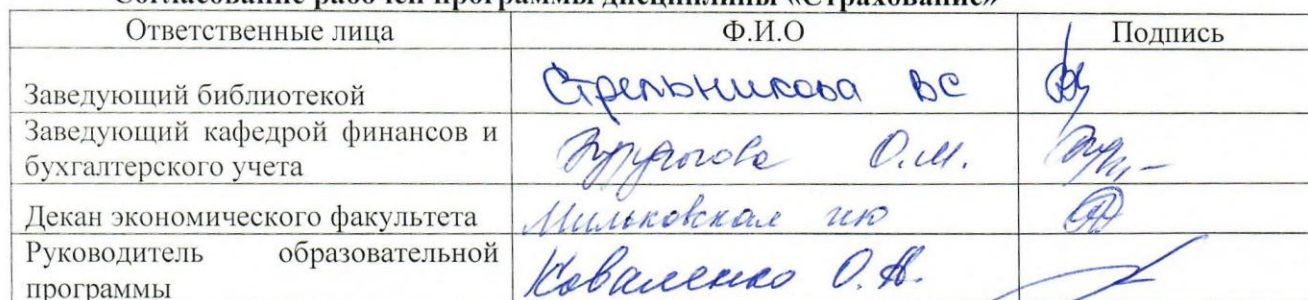 Согласование рабочей программы дисциплины «Страхование»
Ответственные лица Ф.И.О Подпись
Заведующий библиотекой Стрельникова ВС
Заведующий кафедрой финансов и
бухгалтерского учета О.М.
Декан экономического факультета Мильковская ию
Руководитель образовательной
программы Коваленко О.А.